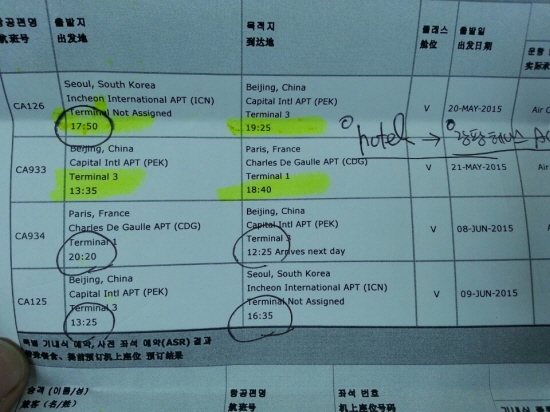 항공편명 출발지 목적지 클래스 출발일
航班号 出发地 到达地 舱位 出发日期 实际承
Seoul, South Korea Beijing, China
Incheon International APT (ICN) Capital Intl APT (PEK)
CA126 Terminal Not Assigned Terminal 3 V 20-MAY-2015 Air
17:50 19:25
hotel →
Beijing, China Paris, France
Capital Intl APT (PEK) Charles De Gaulle APT (CDG)
CA933 Terminal 3 Terminal 1 V 21-MAY-2015 Air
13:35 18:40
Paris, France Beijing, China
Charles De Gaulle APT (CDG) Capital Intl APT (PEK)
CA934 Terminal 1 Terminal 3 V 08-JUN-2015
20:20 12:25 Arrives next day
Beijing, China Seoul, South Korea
Capital Intl APT (PEK) Incheon International APT (ICN)
CA125 Terminal 3 Terminal Not Assigned V 09-JUN-2015
13:25 16:35
특별 기내식 예약, 사전 좌석 예약(ASR) 결과
提前预订机上座位 预订结果
승객 (이름/성) 항공편명 좌석 번호
旅客 (名/姓) 航班号 机上座位号码